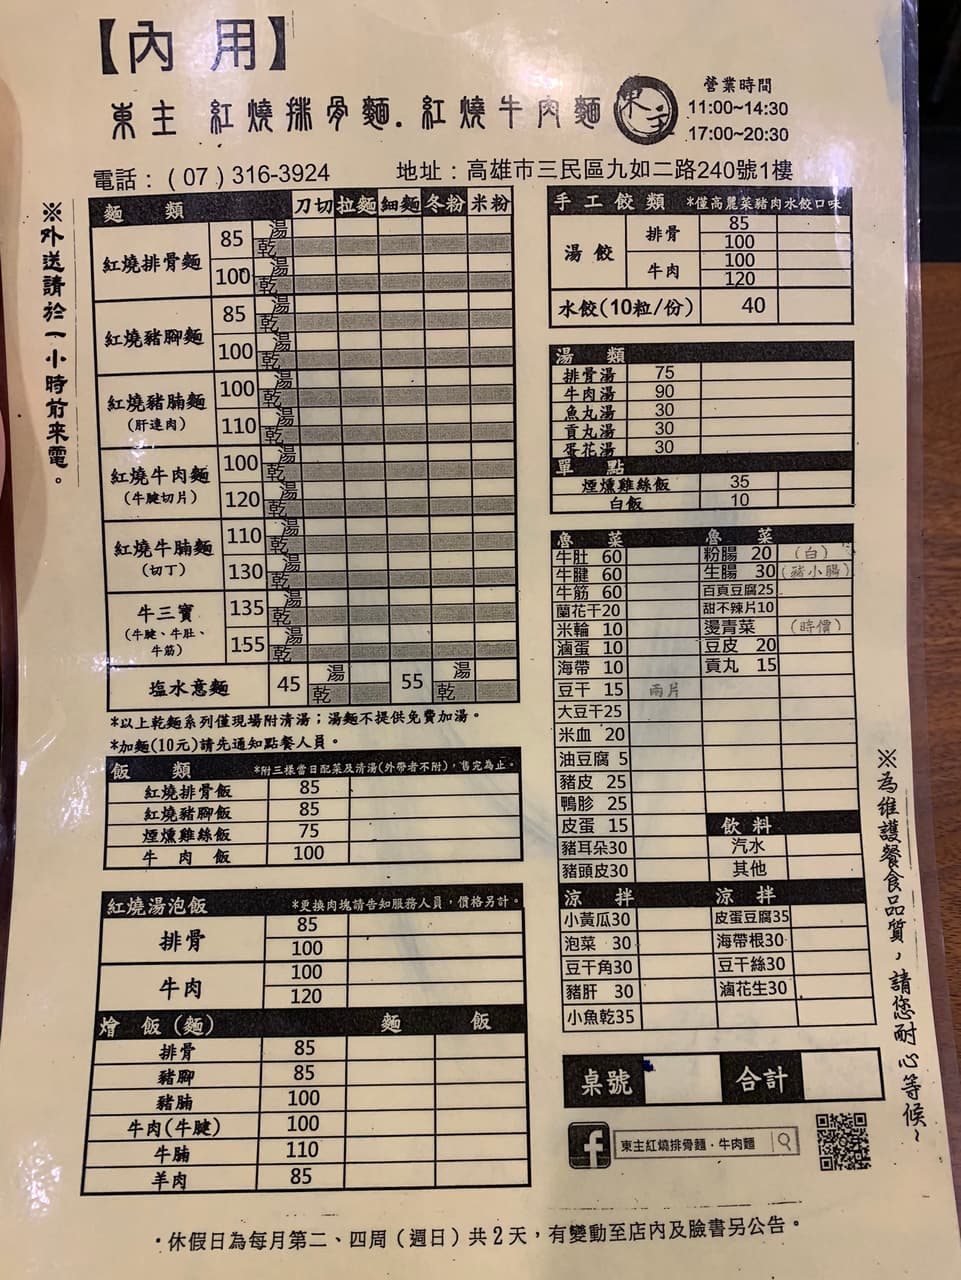 【內 用】
東主 紅燒排骨麵.紅燒牛肉麵
東主
營業時間
11:00~14:30
17:00~20:30
電話：(07)316-3924 地址：高雄市三民區九如二路240號1樓
※外送請於一小時前來電。
麵 類 刀切 拉麵 細麵 冬粉 米粉
紅燒排骨麵 85 湯 乾
100 湯 乾
紅燒豬腳麵 85 湯 乾
100 湯 乾
紅燒豬腩麵 100 湯 乾
(肝連肉) 110 湯 乾
紅燒牛肉麵 100 湯 乾
(牛腱切片) 120 湯 乾
紅燒牛腩麵 110 湯 乾
(切丁) 130 湯 乾
牛三寶 135 湯 乾
(牛腱、牛肚、
牛筋) 155 湯 乾
塩水意麵 45 湯 乾 55 湯 乾
*以上乾麵系列僅現場附清湯；湯麵不提供免費加湯。
*加麵(10元)請先通知點餐人員。
飯 類 *附三樣當日配菜及清湯(外帶者不附)，售完為止。
紅燒排骨飯 85
紅燒豬腳飯 85
煙燻雞絲飯 75
牛 肉 飯 100
紅燒湯泡飯 *更換肉塊請告知服務人員，價格另計。
排骨 85
100
牛肉 100
120
燴 飯(麵) 麵 飯
排骨 85
豬腳 85
豬腩 100
牛肉(牛腱) 100
牛腩 110
羊肉 85
手 工 餃 類 *僅高麗菜豬肉水餃口味
湯 餃 排骨 85
100
牛肉 100
120
水餃(10粒/份) 40
湯 類
排骨湯 75
牛肉湯 90
魚丸湯 30
貢丸湯 30
蛋花湯 30
單 點
煙燻雞絲飯 35
白飯 10
魯 菜 魯 菜
牛肚 60 粉腸 20 (白)
牛腱 60 生腸 30 (豬小腸)
牛筋 60 百頁豆腐25
蘭花干20 甜不辣片10
米輪 10 燙青菜 (時價)
滷蛋 10 豆皮 20
海帶 10 貢丸 15
豆干 15 兩片
大豆干25
米血 20
油豆腐 5
豬皮 25
鴨胗 25
皮蛋 15 飲 料
豬耳朵30 汽水
豬頭皮30 其他
涼 拌 涼 拌
小黃瓜30 皮蛋豆腐35
泡菜 30 海帶根30
豆干角30 豆干絲30
豬肝 30 滷花生30
小魚乾35
※為維護餐食品質，請您耐心等候~
桌號 合計
f 東主紅燒排骨麵·牛肉麵
·休假日為每月第二、四周（週日）共2天，有變動至店內及臉書另公告。